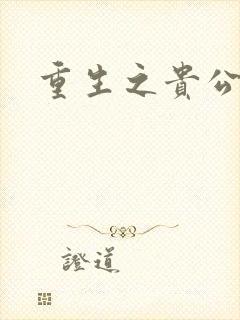 重生之貴公
證道